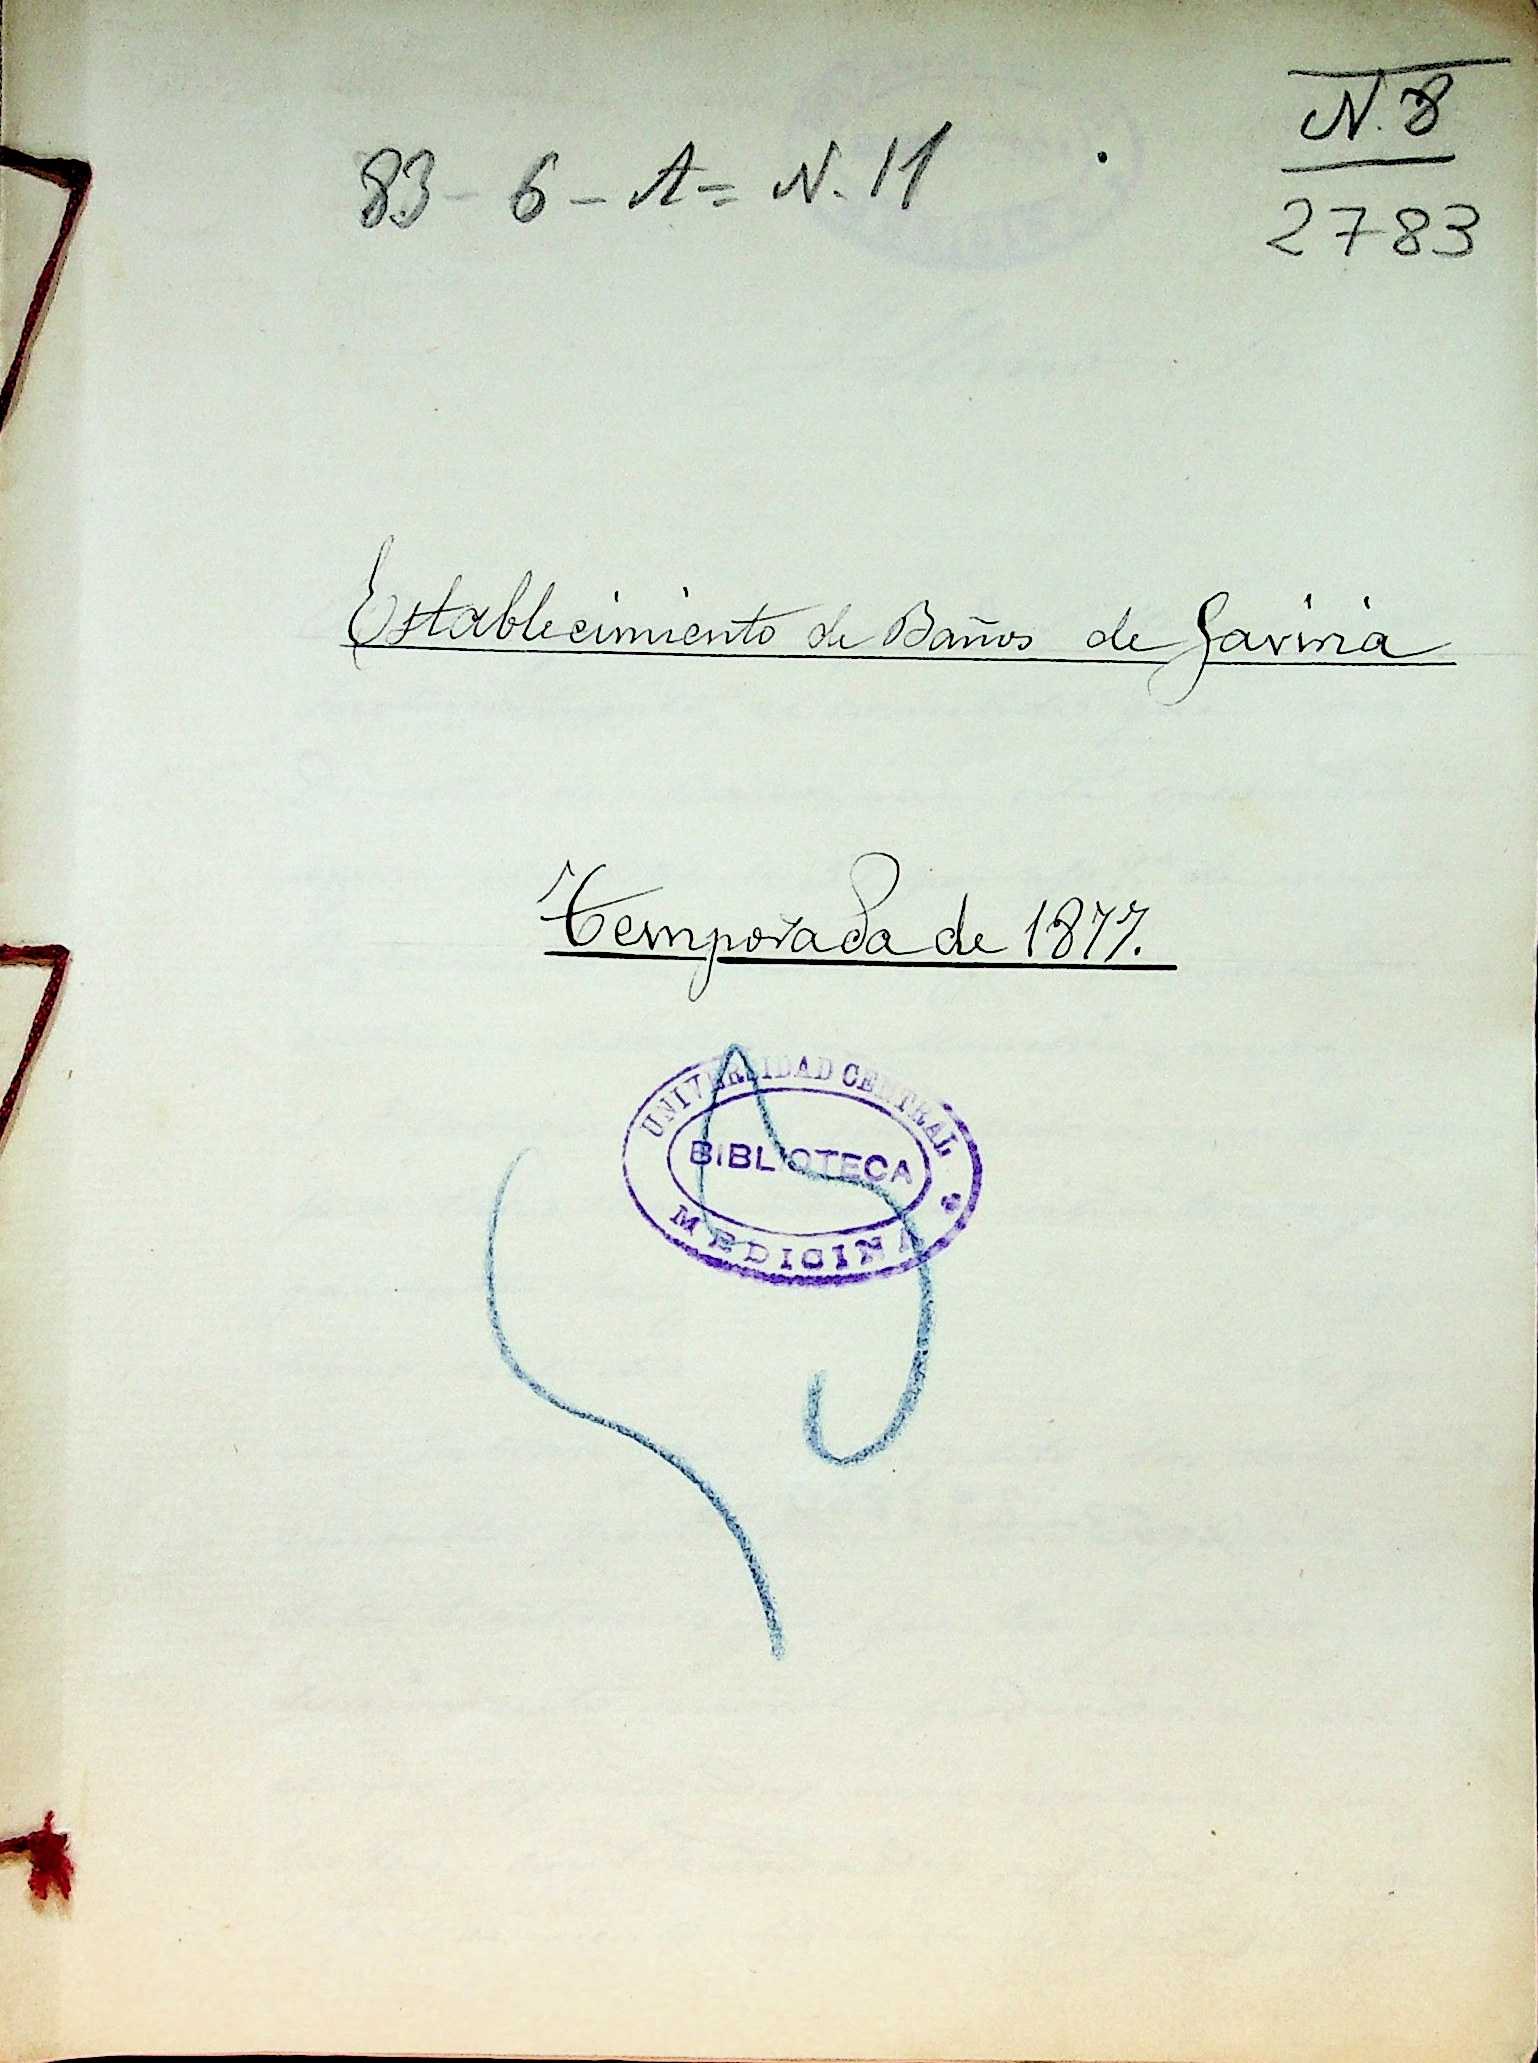 N. 8
83 - 6 - A = N. 11
2783
Establecimiento de Baños de Gaviria
Temporada de 1877.
UNIVERSIDAD CENTRAL
BIBLIOTECA
MEDICINA